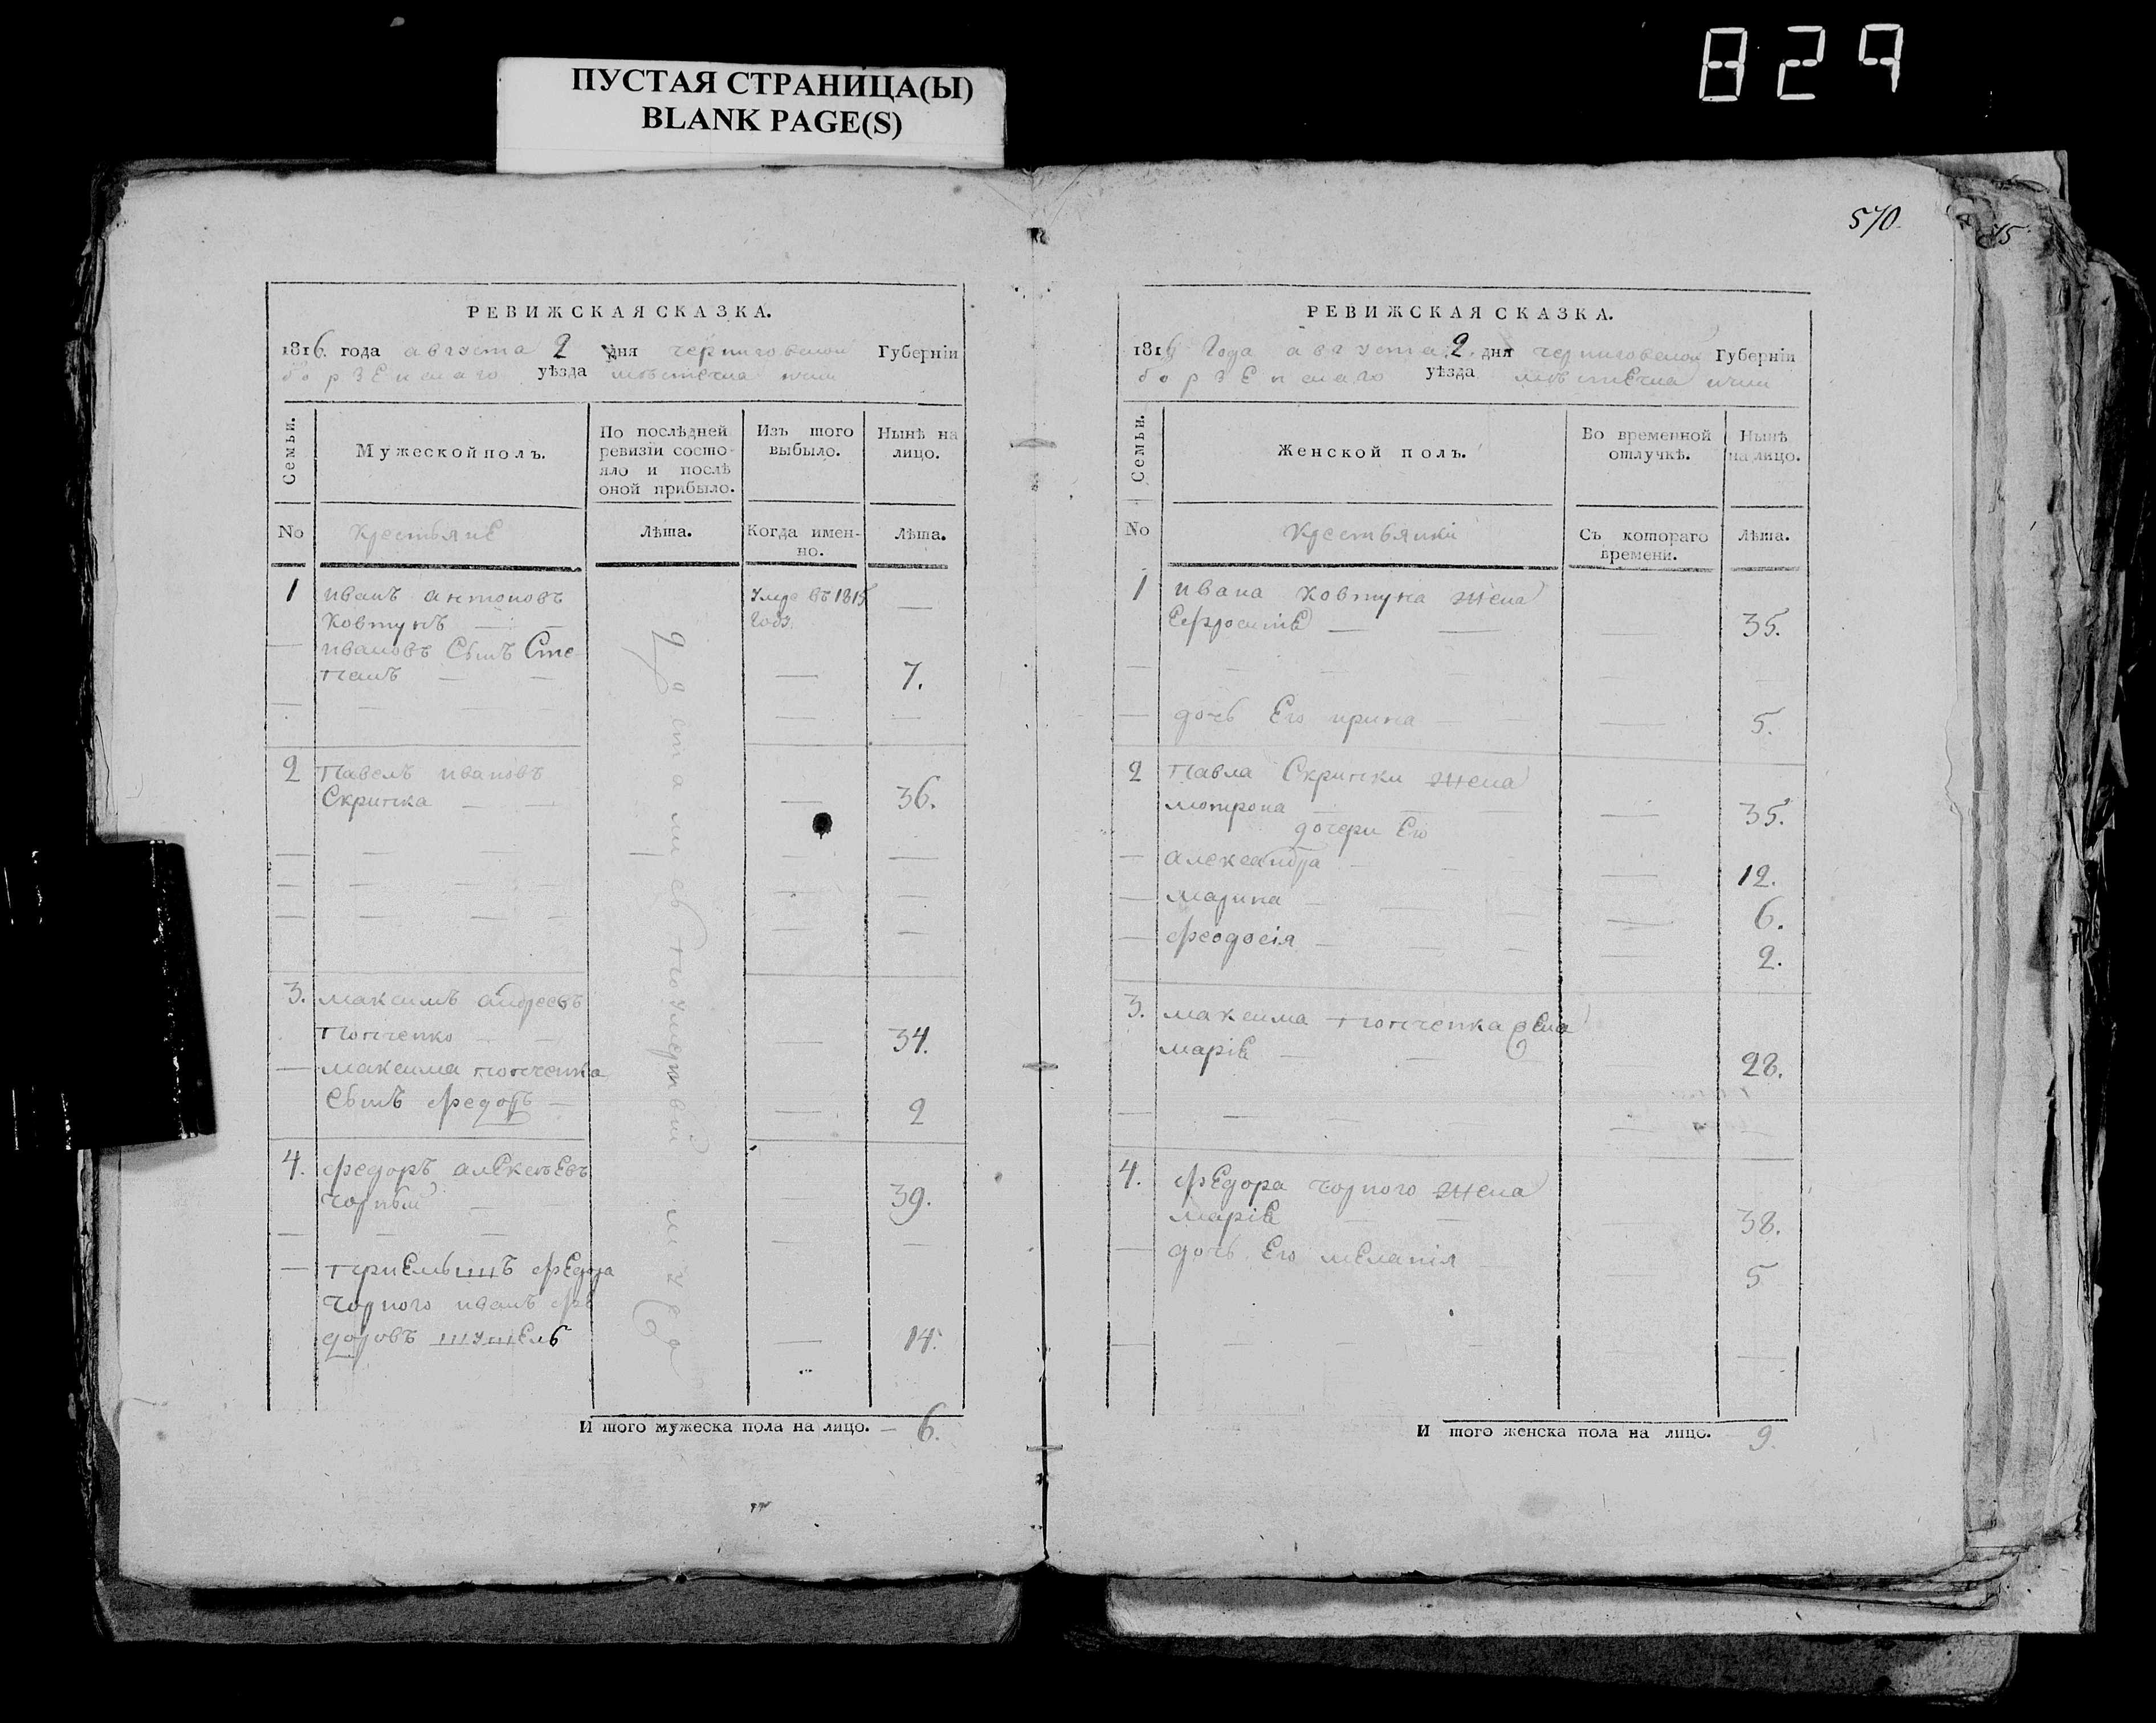 829
ПУСТАЯ СТРАНИЦА(Ы)
BLANK PAGE(S)
РЕВИЖСКАЯ СКАЗКА.
1816. года августа 2 дня черниговской Губерніи
борзенскаго уѣзда мѣстечка ични
Семьи.
Мужеской полъ.
По послѣдней ревизіи состояло и послѣ оной прибыло.
Изъ того выбыло.
Нынѣ на лицо.
No крестьяне Лѣта. Когда именно. Лѣта.
1 иванъ антоновъ умре въ 1815
Ковтунъ — — году —
— ивановъ Сынъ Сте
панъ — — — 7.
2 Павелъ ивановъ
Скрипка — — — 36.
3. максимъ андреевъ
попченко — — — 34.
— максима попченка
Сынъ федоръ — — 2
4. федоръ алексѣевъ
чорный — — 39.
— приемышъ федора
чорного иванъ фе
доровъ шутель — 14.
И того мужеска пола на лицо. — 6.
570.
75
РЕВИЖСКАЯ СКАЗКА.
1816 Года августа 2. дня черниговской Губерніи
борзенскаго уѣзда мѣстечка ични
Семьи.
Женской полъ.
Во временной отлучкѣ.
Нынѣ на лицо.
No крестьянки Съ котораго времени. Лѣта.
1 ивана ковтуна жена
Ефросиніе — — — 35.
— дочь Его ирина — — 5.
2 Павла Скрипки жена
мотрона — — — 35.
дочери Его
— александра — — 12.
— марина — — 6.
— феодосія — — 2.
3. максима попченка жена
маріе — — — 28.
4. федора чорного жена
маріе — — — 38.
— дочь Его меланія — 5
И того женска пола на лицо. 9.